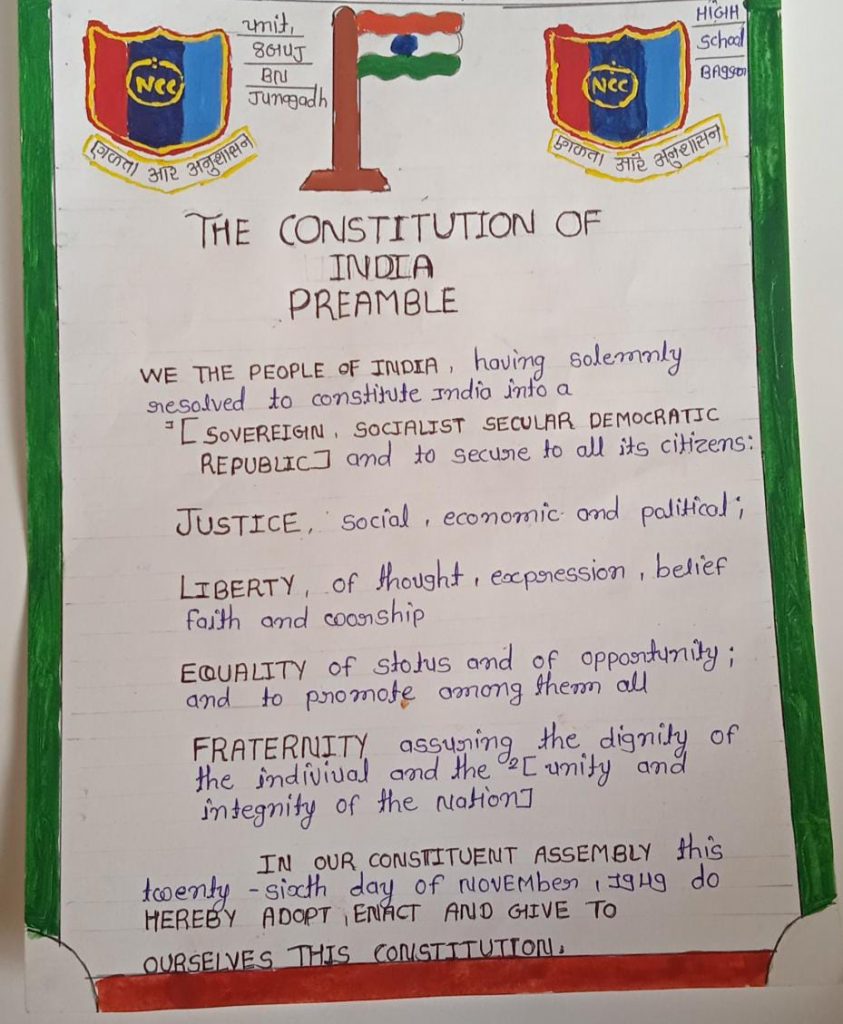 unit,
8GUJ
BN
Junagadh
HIGH
School
BAggar
NCC
एकता और अनुशासन
NCC
एकता और अनुशासन
THE CONSTITUTION OF
INDIA
PREAMBLE
WE THE PEOPLE OF INDIA, having solemnly
resolved to constitute India into a
¹[SOVEREIGN, SOCIALIST SECULAR DEMOCRATIC
REPUBLIC] and to secure to all its citizens:
JUSTICE, social, economic and political;
LIBERTY, of thought, expression, belief
faith and worship
EQUALITY of status and of opportunity;
and to promote among them all
FRATERNITY assuring the dignity of
the indiviual and the ²[unity and
integnity of the Nation]
IN OUR CONSTITUENT ASSEMBLY this
twenty-sixth day of NOVEMber, 1949 do
HEREBY ADOPT, ENACT AND GIVE TO
OURSELVES THIS CONSTITUTION.